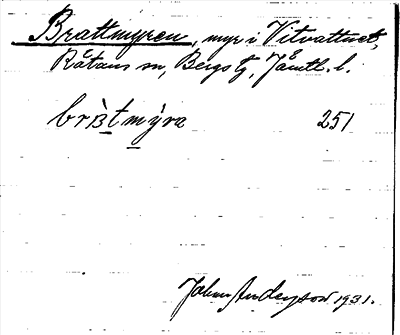 Brattmyren, myr i Vitvattnet,
Rätans sn, Bergs tg, Jämtl. l.
brɑ̀tmýra 251
Johan Anderson 1931.